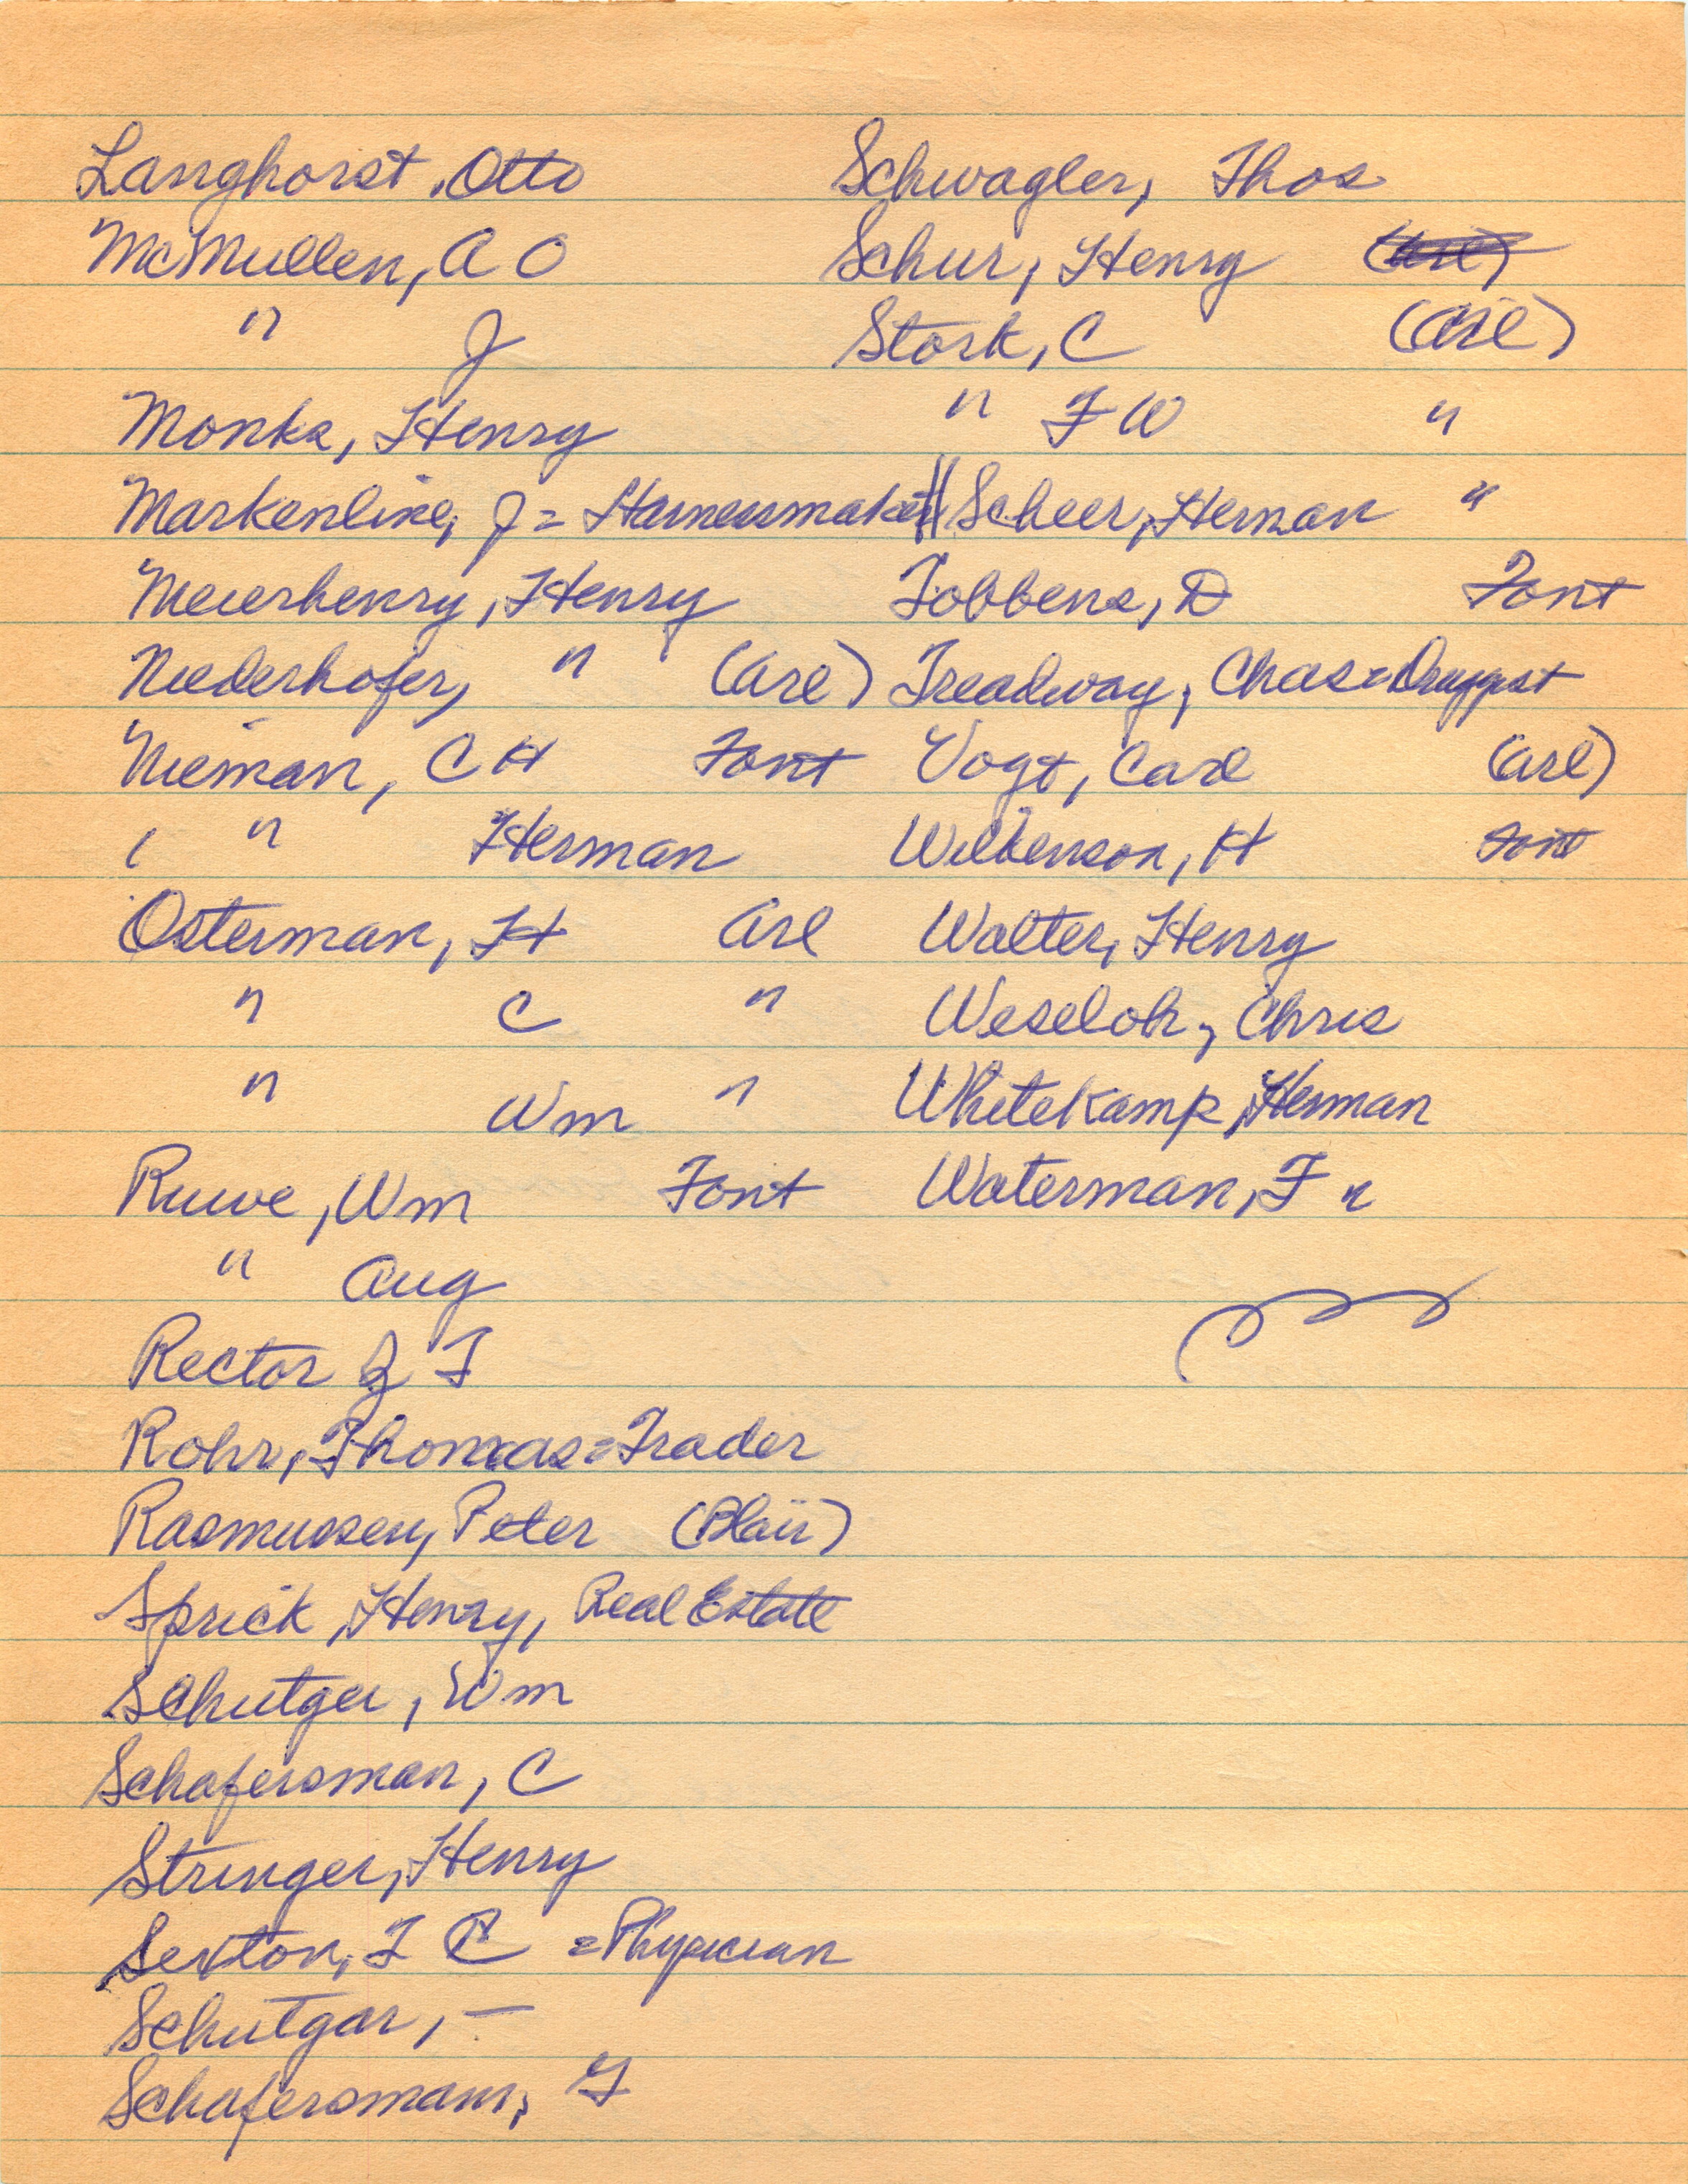 Langhorst, Otto
McMullen, A O
" J
Monke, Henry
Markenline, J = Harnessmaker
Meierhenry, Henry
Niederhofer, " (Arl)
Nieman, C H Font
" Herman
Osterman, H Arl
" C "
" Wm "
Ruwe, Wm Font
" Aug
Rector J T
Rohr, Thomas = Trader
Rasmussen, Peter (Blair)
Sprick, Henry, Real Estate
Schutger, Wm
Schafersman, C
Stringer, Henry
Sexton, = Physician
Schutgar, —
Schafersmann,
Schwagler, Thos
Schur, Henry (Arl)
Stork, C (Arl)
" F W "
Scheer, Herman "
Tobbens, D Font
Treadway, Chas = Druggist
Vogt, Carl (Arl)
Wilkenson, H Font
Walter, Henry
Weseloh, Chris
Whitekamp, Herman
Waterman, F "